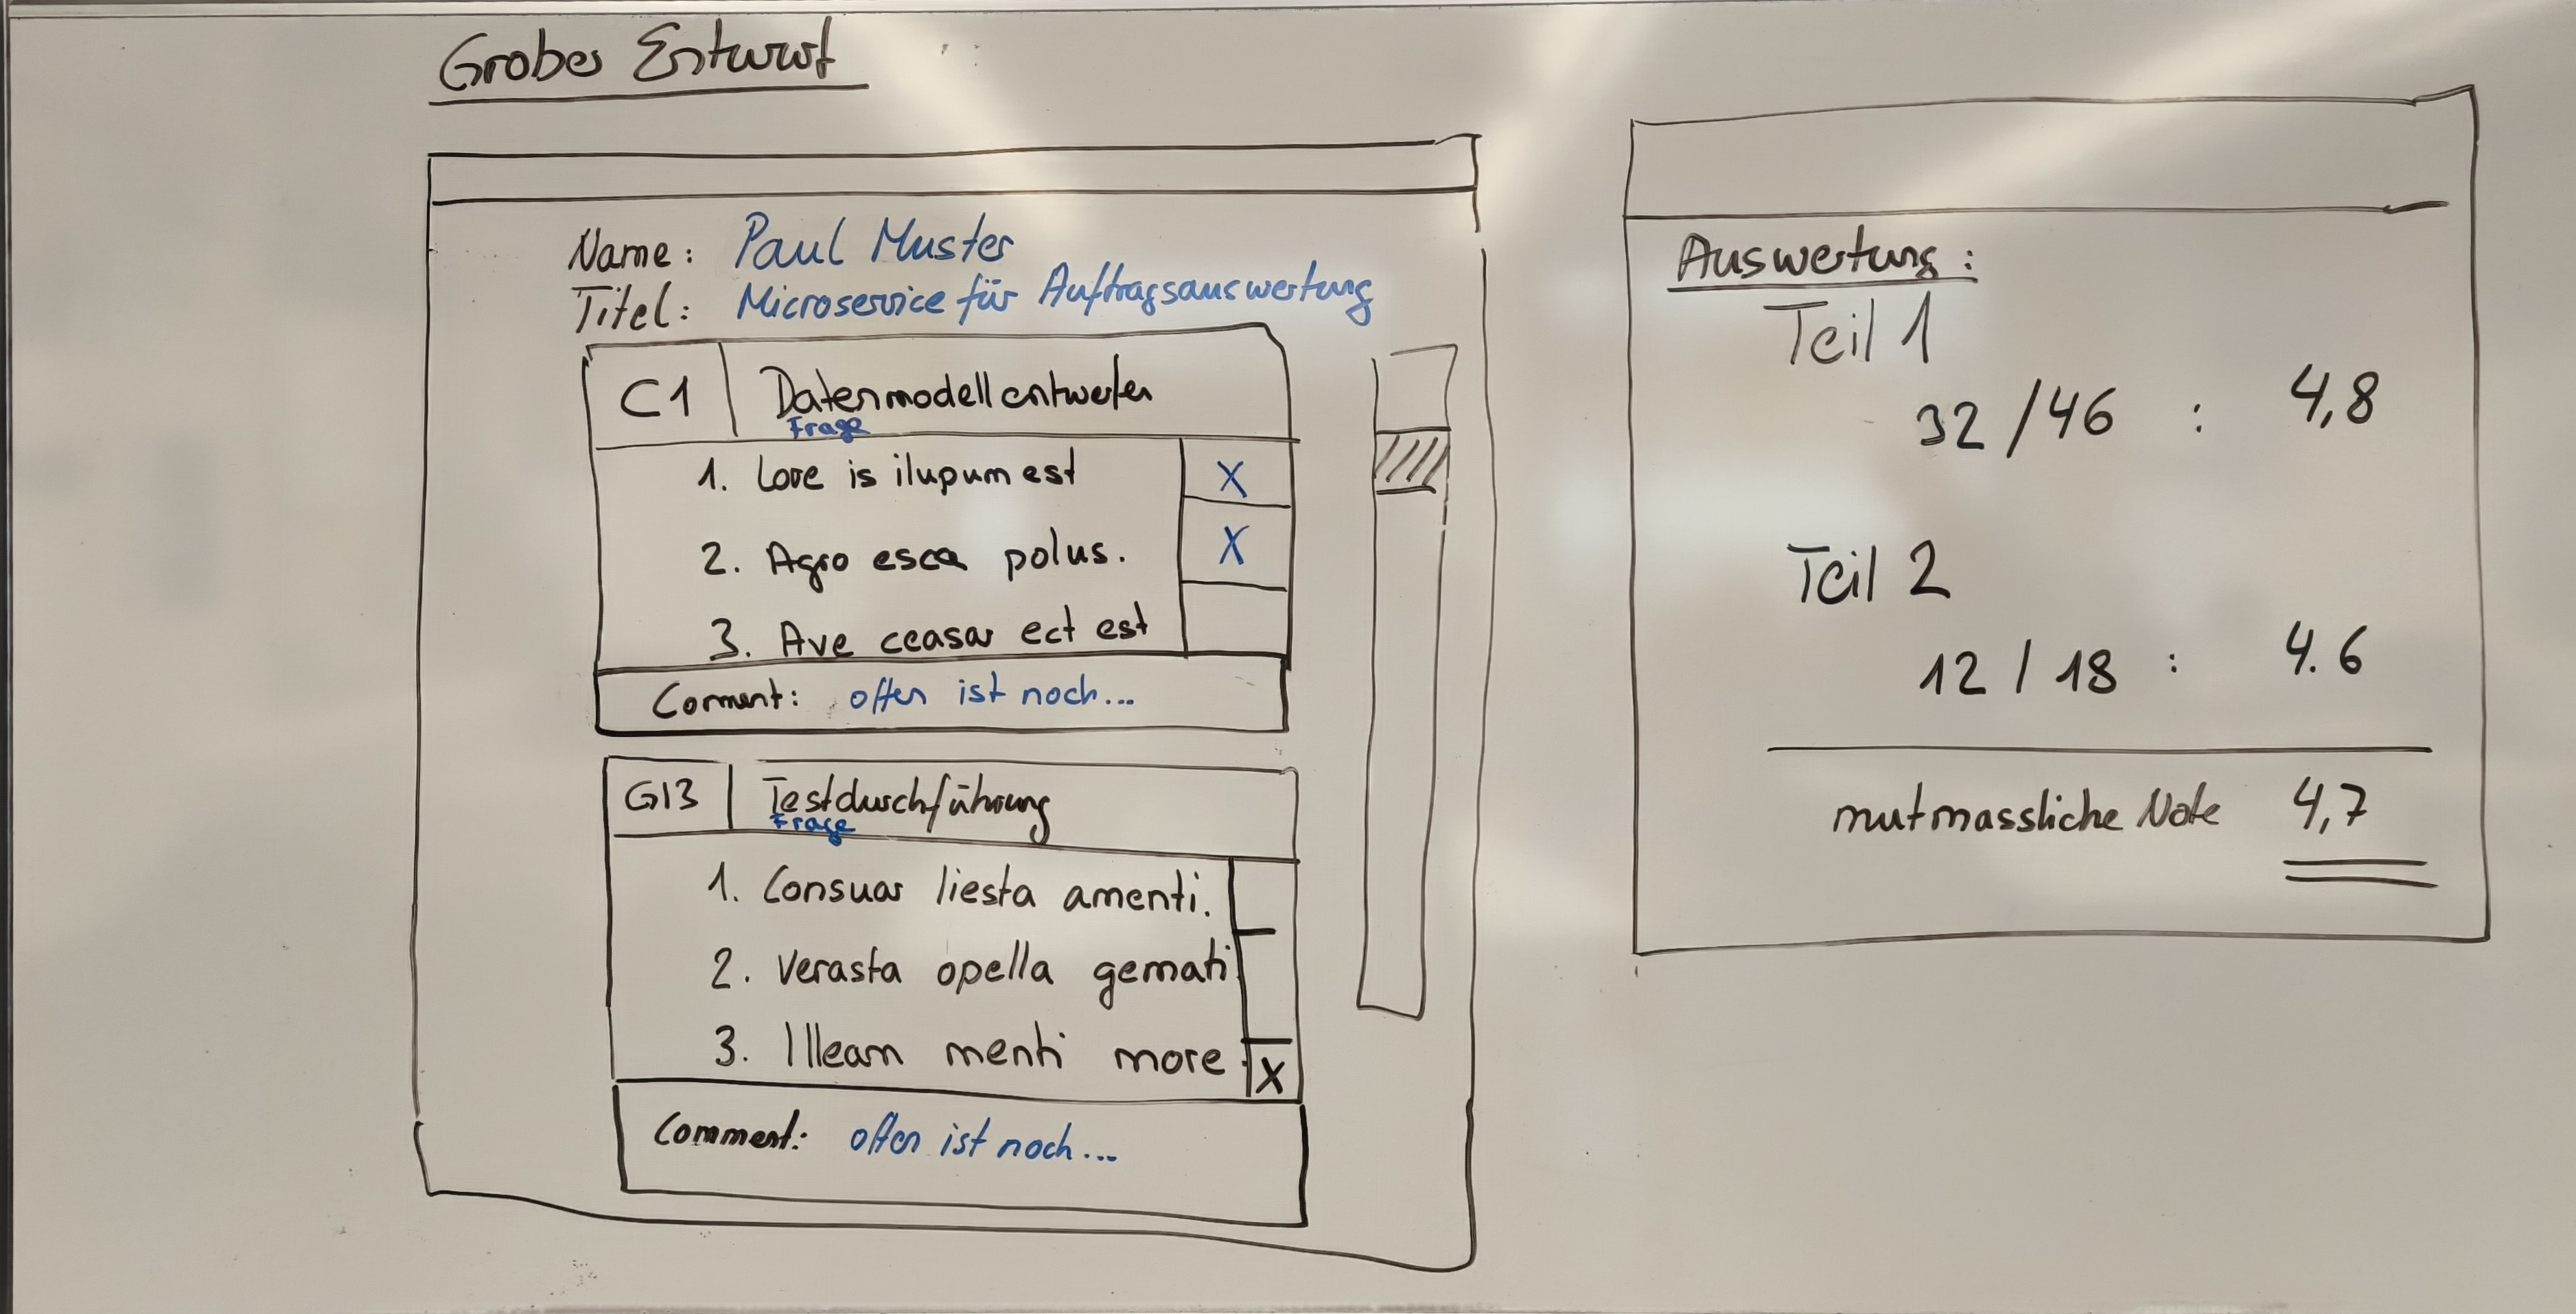 Grober Entwurf
Name: Paul Muster
Titel: Microservice für Auftragsauswertung
C1 Datenmodell entwerfen
Frage
1. Love is ilupum est X
2. Agro esca polus. X
3. Ave ceasar ect est
Comment: offen ist noch...
G13 Testdurchführung
Frage
1. Consuar liesta amenti.
2. Verasta opella gemati
3. Illeam menti more X
Comment: offen ist noch...
Auswertung:
Teil 1
32/46 : 4,8
Teil 2
12/18 : 4.6
mutmassliche Note 4,7